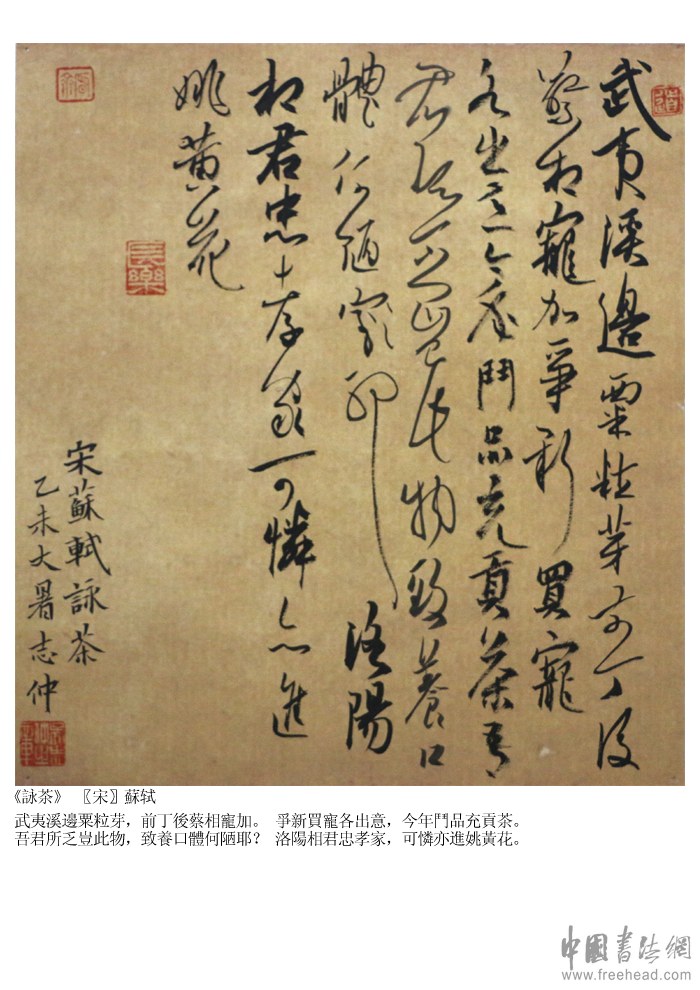 武夷溪邊粟粒芽前丁後
蔡相寵加爭新買寵
各出意今年鬥品充貢茶吾
君所乏豈此物致養口
體何陋耶洛陽
相君忠孝家可憐亦進
姚黄花
長樂
宋蘇軾詠茶
乙未大暑志仲
《詠茶》 〖宋〗蘇轼
武夷溪邊粟粒芽，前丁後蔡相寵加。 爭新買寵各出意，今年鬥品充貢茶。
吾君所乏豈此物，致養口體何陋耶？ 洛陽相君忠孝家，可憐亦進姚黃花。
中國書法網
www.freehead.com